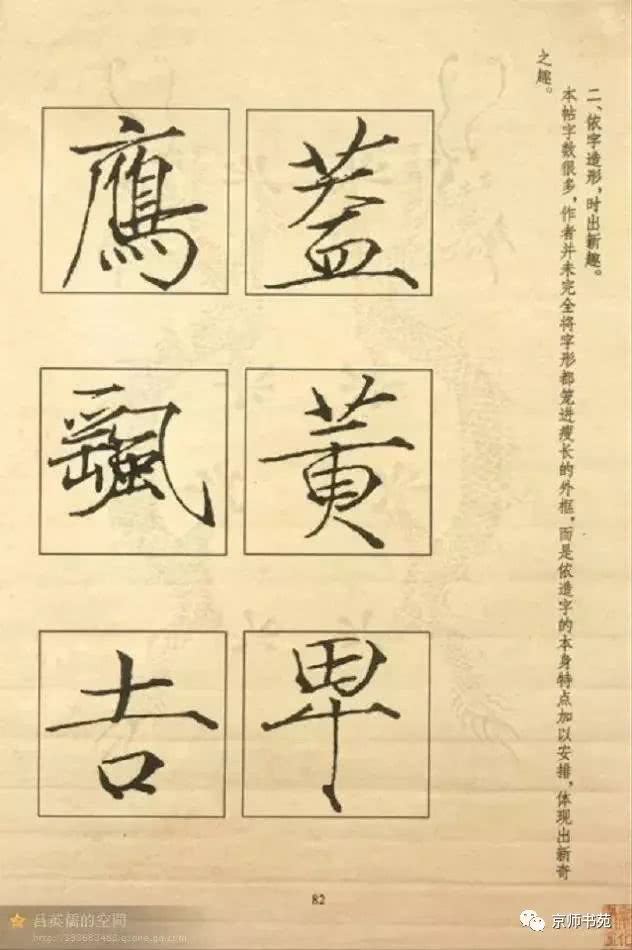 二、依字造形，时出新趣。
本帖字数很多，作者并未完全将字形都笼进瘦长的外框，而是依造字的本身特点加以安排，体现出新奇
之趣。
蓋
黄
卑
鷹
颻
吉
82
吕英儒的空间
京师书苑